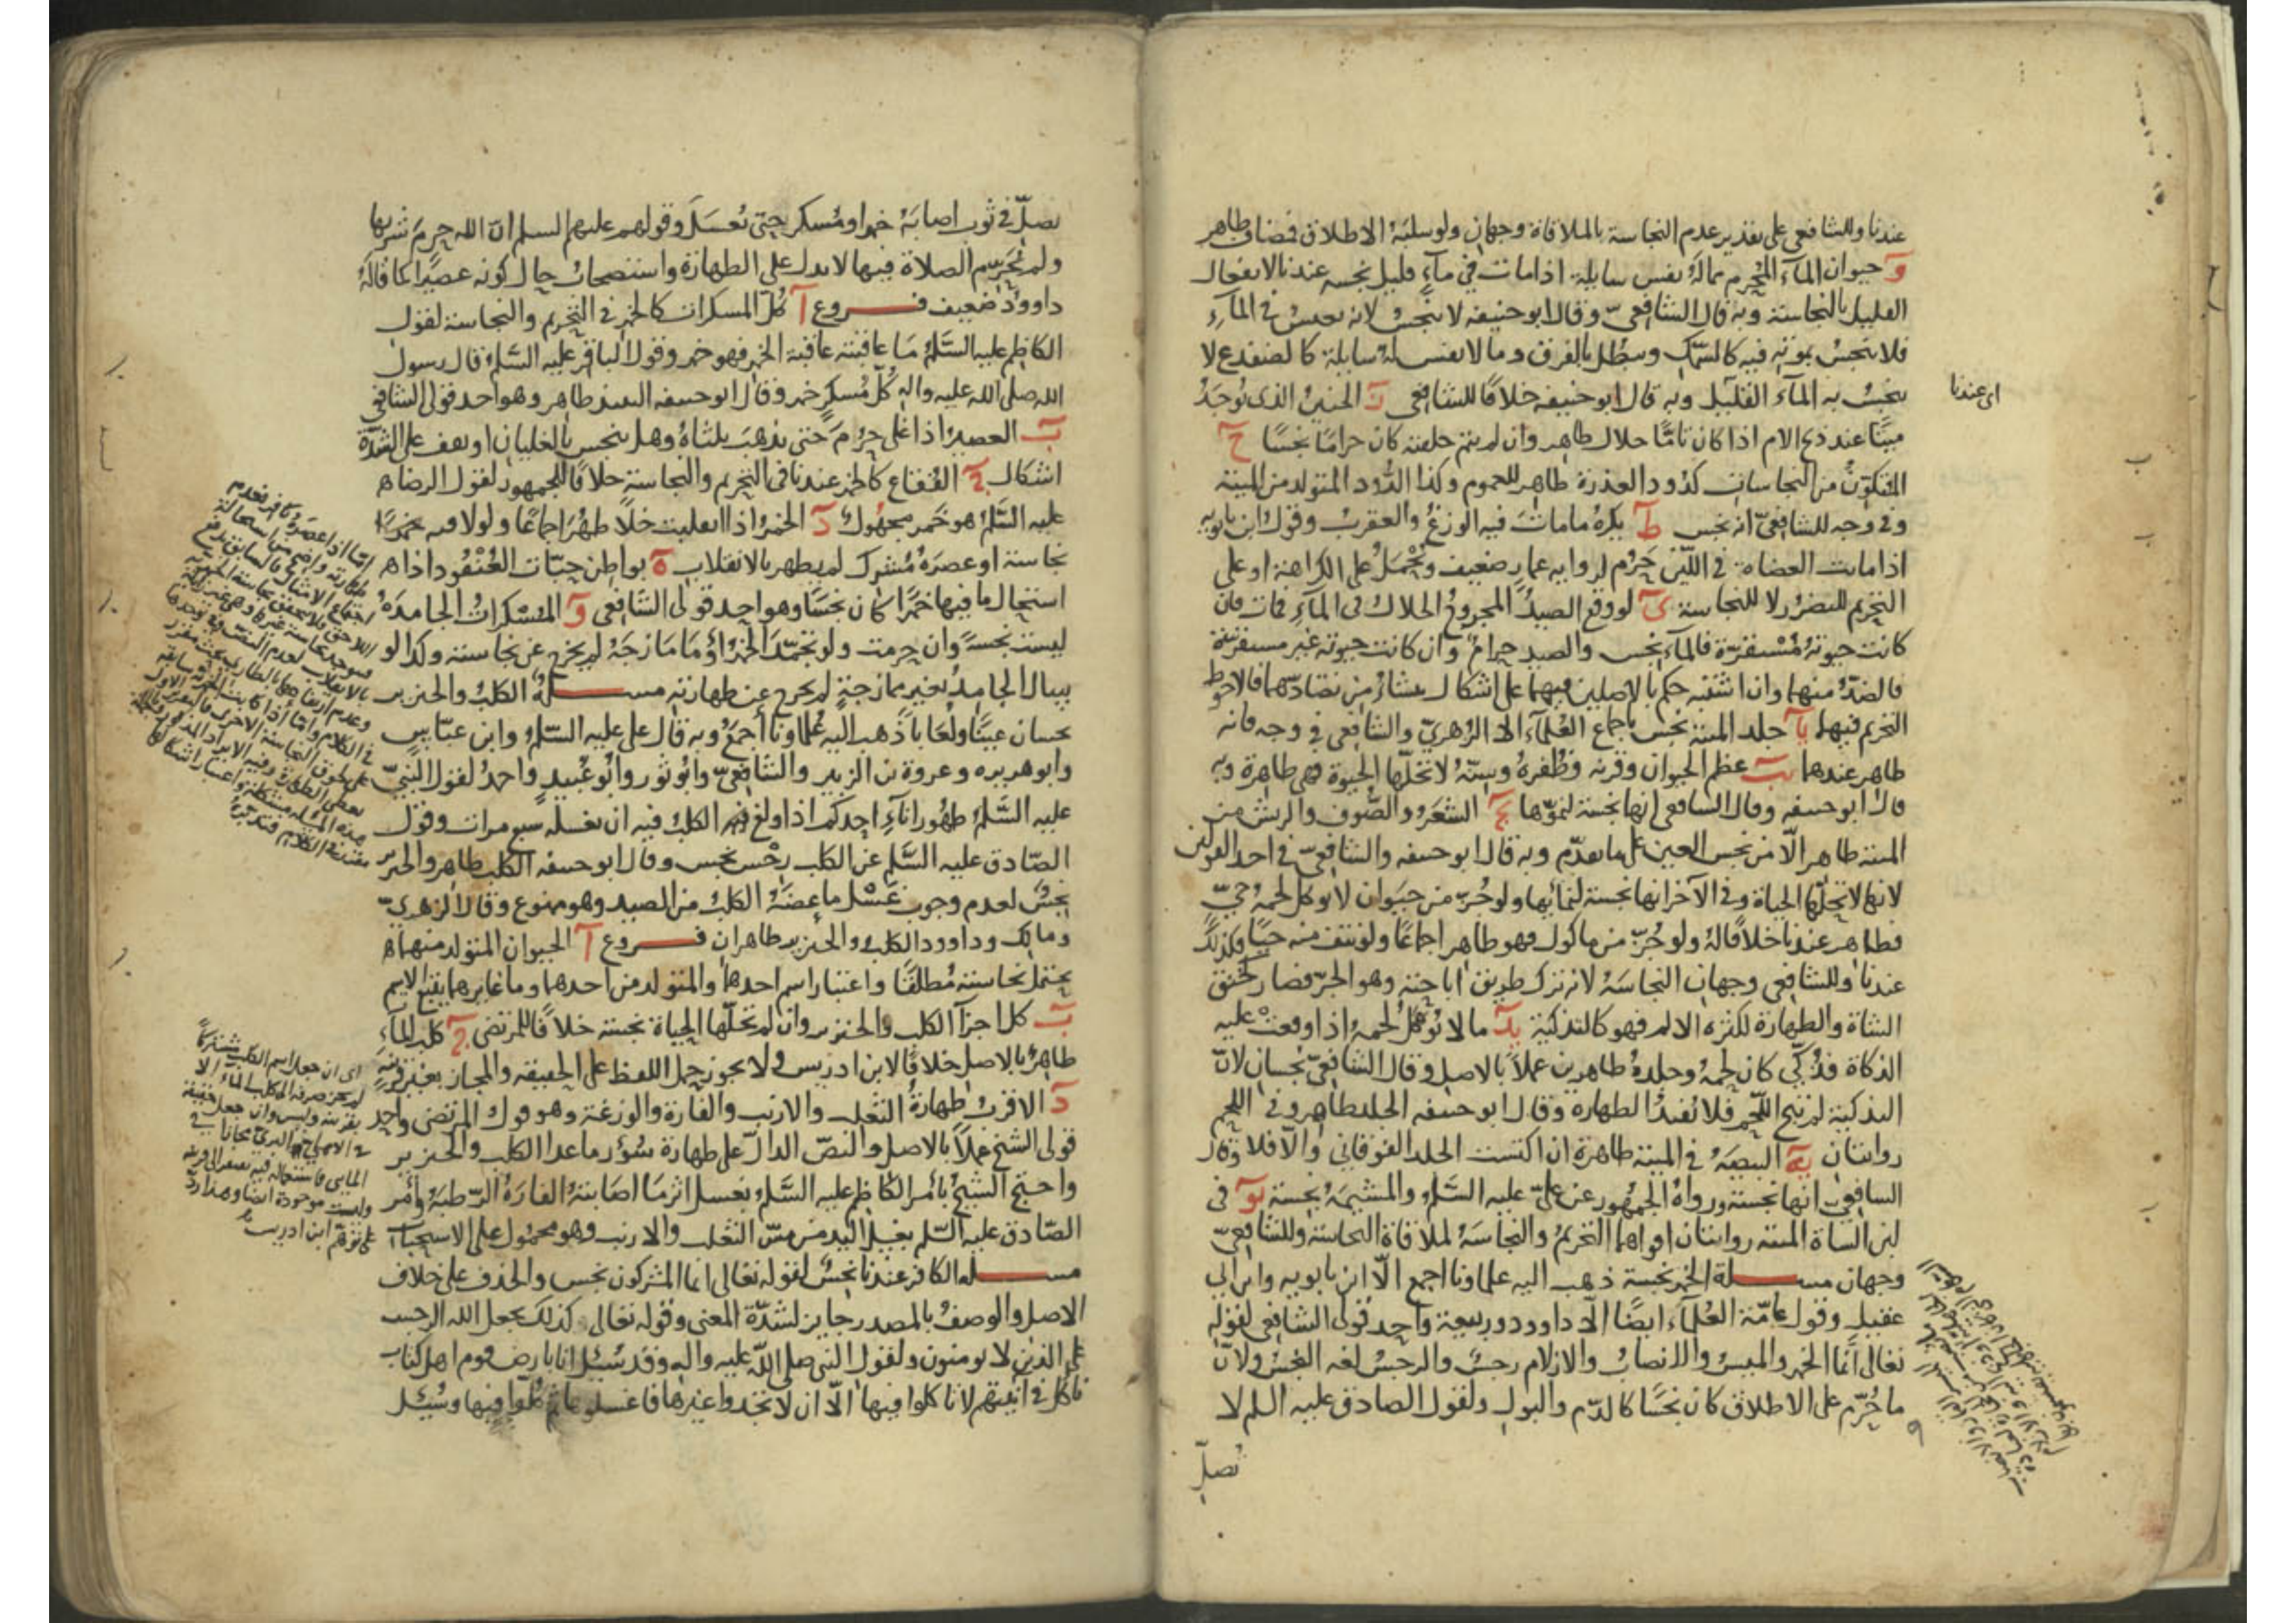 عندنا وللشافعي على تقدير عدم النجاسة بالملاقاة وجهان ولو سلبته الاطلاق فمضاف طاهر
و حيوان الماء المحرم مما له نفس سايلة اذا مات في ماء قليل نجسه عندنا لانفعال
القليل بالنجاسة وبه قال الشافعي وقال ابو حنيفه لا ينجس لانه يعيش في الماء
فلا ينجس بموته فيه كالسمك ويبطل بالفرق وما لا نفس له سايلة كالضفدع لا
ينجس به الماء القليل وبه قال ابو حنيفه خلافا للشافعي ز الجنين الذى يوجد
اى عندنا
ميتا عند ذبح الام اذا كان تاما حلال طاهر وان لم يتم خلقته كان حراما نجسا ح
المتكون من النجاسات كدود العذرة طاهر للعموم وكذا الدود المتولد من الميتة
وفي وجه للشافعي انه نجس ط يكره ما مات فيه الوزغ والعقرب وقول ابن بابويه
اذا مات العضاة في اللبن حرم لرواية عمار ضعيف ويحمل على الكراهة او على
التحريم للتضرر لا للنجاسة ى لو وقع الصيد المجروح الحلال في الماء فمات فان
كانت حيوته مستقرة فالماء نجس والصيد حرام وان كانت حيوته غير مستقرة
فالضد منهما وان اشتبه حكم بالاصلين فيهما على اشكال ينشا من تضادهما فالاحوط
التحريم فيهما يا جلد الميتة نجس باجماع العلماء الا الزهري والشافعي في وجه فانه
طاهر عندهما يب عظم الحيوان وقرنه وظفره وسنه لا تحلها الحيوة فهي طاهرة وبه
قال ابو حنيفه وقال الشافعي انها نجسة لنموها يج الشعر والصوف والريش من
الميتة طاهر الا من نجس العين على ما تقدم وبه قال ابو حنيفه والشافعي في احد القولين
لانها لا تحلها الحياة وفي الآخر انها نجسة لنمائها ولو جز من حيوان لا يوكل لحمه حي
فطاهر عندنا خلافا له ولو جز من ماكول فهو طاهر اجماعا ولو نتف منه حيا فكذلك
عندنا وللشافعي وجهان النجاسة لانه ترك طريق اباحته وهو الجز فصار كخنق
الشاة والطهارة لكثرة الالم فهو كالتذكية يد ما لا يؤكل لحمه اذا وقعت عليه
الذكاة فذكي كان لحمه وجلده طاهرين عملا بالاصل وقال الشافعي نجسان لان
التذكية لم تبح اللحم فلا تفيد الطهارة وقال ابو حنيفه الجلد طاهر وفي اللحم
روايتان يه البيضة في الميتة طاهرة ان اكتست الجلد الفوقاني والا فلا وقال
الشافعي انها نجسة ورواه الجمهور عن علي عليه السلم والمشيمة نجسة يو في
لبن الشاة الميتة روايتان اقواهما التحريم والنجاسة لملاقاة النجاسة وللشافعي
وجهان مسلة الخمر نجسة ذهب اليه علماونا اجمع الا ابن بابويه وابن ابي
عقيل وقول عامة العلماء ايضا الا داوود وربيعة واحد قولى الشافعي لقوله
تعالى انما الخمر والميسر والانصاب والازلام رجس والرجس لغة النجس ولان
ما حرم على الاطلاق كان نجسا كالدم والبول ولقول الصادق عليه السلم لا
تصل
تصل في ثوب اصابه خمر او مسكر حتى تغسل وقولهم عليهم السلم ان الله حرم شربها
ولم يحرم الصلاة فيها لا يدل على الطهارة واستصحاب حال كونه عصيرا كما قاله
داوود ضعيف فروع آ كل المسكرات كالخمر في التحريم والنجاسة لقول
الكاظم عليه السلم ما عاقبته عاقبة الخمر فهو خمر وقول الباقر عليه السلم قال رسول
الله صلى الله عليه واله كل مسكر خمر وقال ابو حنيفه النبيذ طاهر وهو احد قولى الشافعي
ب العصير اذا غلى حرم حتى يذهب ثلثاه وهل ينجس بالغليان او يقف على الشدة
اشكال ج الفقاع كالخمر عندنا في التحريم والنجاسة خلافا للجمهور لقول الرضا
عليه السلم هو خمر مجهول د الخمر اذا انقلبت خلا طهر اجماعا ولو لاقته
نجاسة او عصره مشرك لم يطهر بالانقلاب ه بواطن حبات العنقود اذا
استحال ما فيها خمرا كان نجسا وهو احد قولى الشافعي و المسكرات الجامدة
ليست نجسة وان حرمت ولو تجمد الخمر او ما مازجه لم يخرج عن نجاسته وكذا لو
سال الجامد بغير ممازجة لم يخرج عن طهارته مسلة الكلب والخنزير
نجسان عينا ولعابا ذهب اليه علماونا اجمع وبه قال علي عليه السلم وابن عباس
وابو هريره وعروة بن الزبير والشافعي وابو ثور وابو عبيد واحمد لقول النبي
عليه السلم طهور اناء احدكم اذا ولغ فيه الكلب فيه ان يغسله سبع مرات وقول
الصادق عليه السلم عن الكلب رجس نجس وقال ابو حنيفه الكلب طاهر والخنزير
نجس لعدم وجوب غسل ما عضه الكلب من الصيد وهو ممنوع وقال الزهري
ومالك وداوود الكلب والخنزير طاهران فروع آ الحيوان المتولد منهما
يحتمل نجاسته مطلقا واعتبار اسم احدهما والمتولد من احدهما وما غايرهما يتبع الاسم
ب كل اجزآ الكلب والخنزير وان لم تحلها الحياة نجسة خلافا للمرتضى ج كلب الماء
طاهر بالاصل خلافا لابن ادريس ولا يجوز حمل اللفظ على الحقيقه والمجاز بغير قرينة
د الاقرب طهارة الثعلب والارنب والفارة والوزغة وهو قول المرتضى واحد
قولى الشيخ عملا بالاصل والنص الدال على طهارة سؤر ما عدا الكلب والخنزير
واحتج الشيخ بأمر الكاظم عليه السلم بغسل اثر ما اصابته الفارة الرطبة وأمر
الصادق عليه السلم بغسل اليد من مس الثعلب والارنب وهو محمول على الاستحباب
مسله الكافر عندنا نجس لقوله تعالى انما المشركون نجس والحذف على خلاف
الاصل والوصف بالمصدر جايز لشدة المعنى وقوله تعالى كذلك يجعل الله الرجس
على الذين لا يومنون ولقول النبي صلى الله عليه واله وقد سئل انا بارض قوم اهل كتاب
ناكل في آنيتهم لا تاكلوا فيها الا ان لا تجدوا غيرها فاغسلوها ثم كلوا فيها وسئل
اى ان جعل اسم الكلب مشتركا
لم يجز صرفه الى كلب الماء الا
بقرينة وليس وان جعل حقيقة